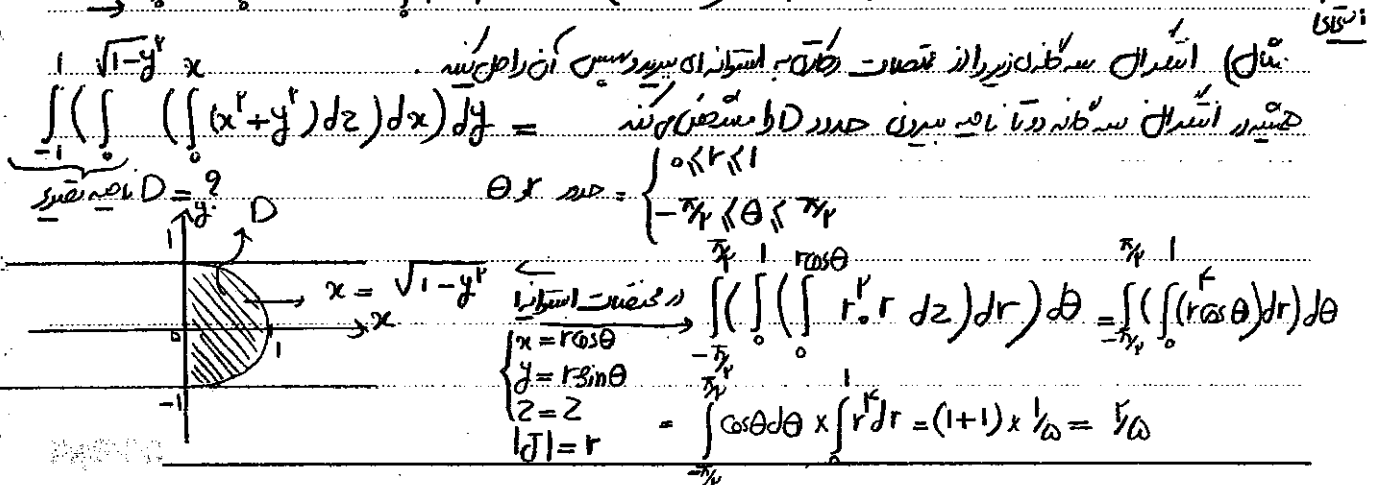 مثال) انتگرال سه‌گانه‌ی زیر را از مختصات دکارتی به استوانه‌ای ببرید و سپس آن را حل کنید.
∫_{-1}^{1} (∫_{0}^{√(1-y^۲)} (∫_{0}^{x} (x^۲+y^۲) dz) dx) dy =
همیشه در انتگرال سه‌گانه دو تا ناحیه بیرونی حدود D را مشخص می‌کند
ناحیه تصویر D = ?
حدود r و θ = { 0 ≤ r ≤ 1
-π/۲ ≤ θ ≤ π/۲
y
D
1
x = √(1-y^۲)
x
0
1
-1
در مختصات استوانه‌ای
{ x = rcosθ
y = rsinθ
z = z
|J| = r
∫_{-π/۲}^{π/۲} (∫_{0}^{1} (∫_{0}^{rcosθ} r^۲. r dz) dr) dθ = ∫_{-π/۲}^{π/۲} (∫_{0}^{1} (r^۴cosθ) dr) dθ
= ∫_{-π/۲}^{π/۲} cosθ dθ × ∫_{0}^{1} r^۴ dr = (1+1) × 1/۵ = ۲/۵